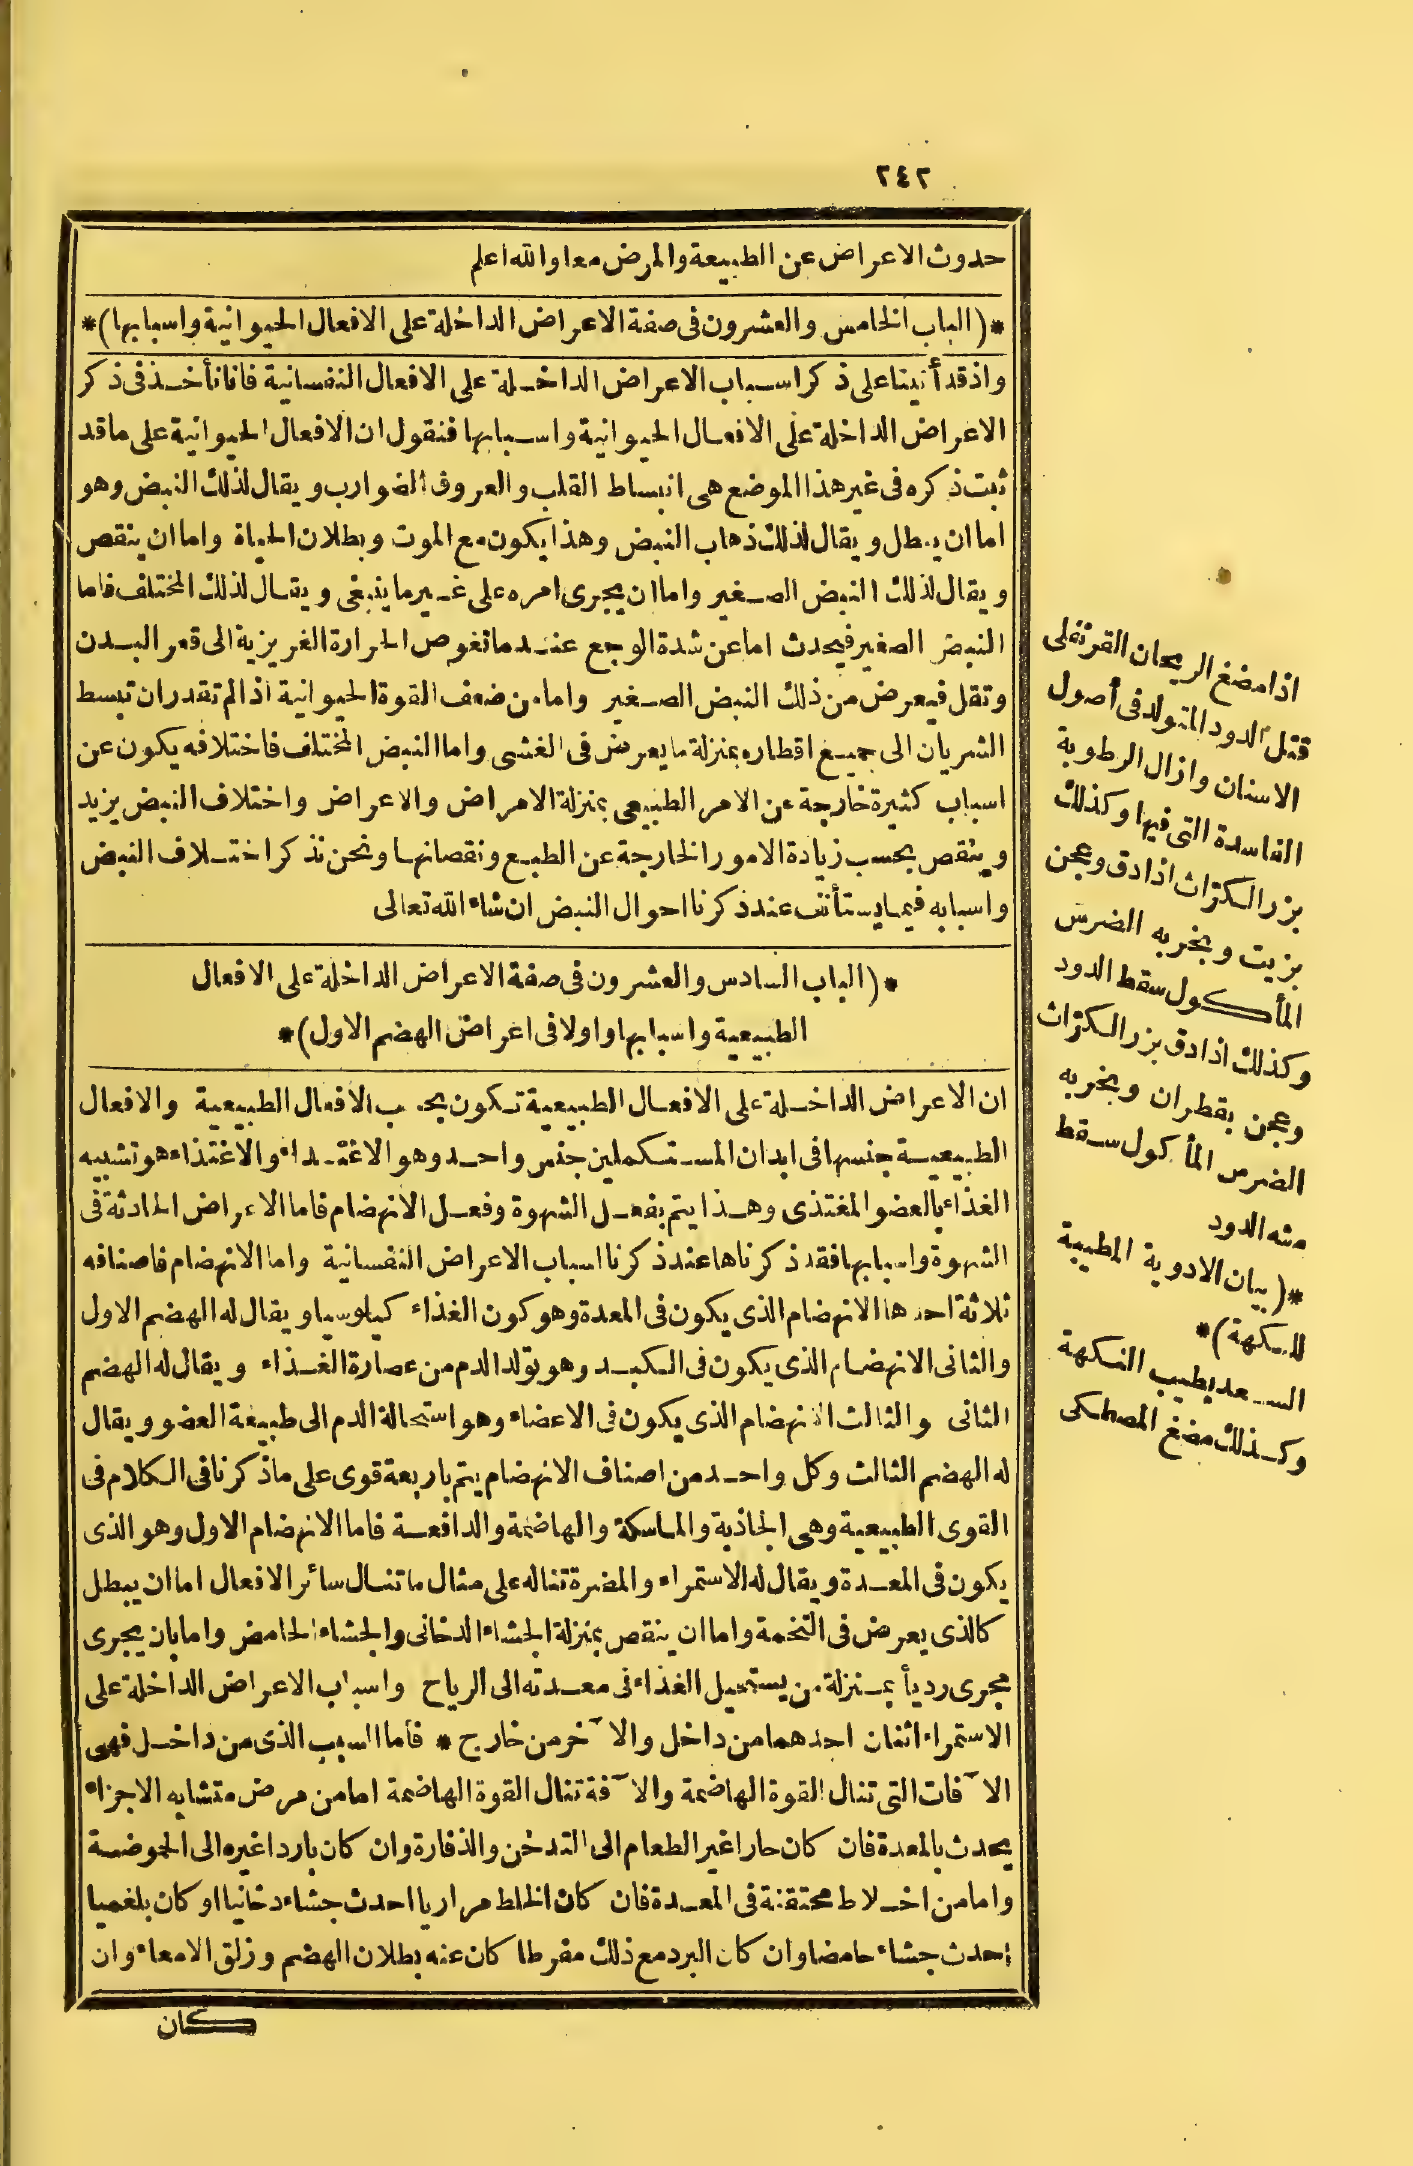 ٢٤٢
حدوث الاعراض عن الطبيعة والمرض معا والله اعلم
*(الباب الخامس والعشرون فى صفة الاعراض الداخلة على الافعال الحيوانية واسبابها)*
واذ قد أتينا على ذكر اسباب الاعراض الداخلة على الافعال النفسانية فانا نأخذ فى ذكر
الاعراض الداخلة على الافعال الحيوانية واسبابها فنقول ان الافعال الحيوانية على ما قد
ثبت ذكره فى غير هذا الموضع هى انبساط القلب والعروق الضوارب ويقال لذلك النبض وهو
اما ان يبطل ويقال لذلك ذهاب النبض وهذا يكون مع الموت وبطلان الحياة واما ان ينقص
ويقال لذلك النبض الصغير واما ان يجرى امره على غير ما ينبغى ويقال لذلك المختلف فاما
النبض الصغير فيحدث اما عن شدة الوجع عند ما تغوص الحرارة الغريزية الى قعر البدن
وتقل فيعرض من ذلك النبض الصغير واما من ضعف القوة الحيوانية اذا لم تقدر ان تبسط
الشريان الى جميع اقطاره بمنزلة ما يعرض فى الغشى واما النبض المختلف فاختلافه يكون عن
اسباب كثيرة خارجة عن الامر الطبيعى بمنزلة الامراض والاعراض واختلاف النبض يزيد
وينقص بحسب زيادة الامور الخارجة عن الطبع ونقصانها ونحن نذكر اختلاف النبض
واسبابه فيما يستأنف عند ذكرنا احوال النبض ان شاء الله تعالى
*(الباب السادس والعشرون فى صفة الاعراض الداخلة على الافعال
الطبيعية واسبابها واولا فى اعراض الهضم الاول)*
ان الاعراض الداخلة على الافعال الطبيعية تكون بحسب الافعال الطبيعية والافعال
الطبيعية جنسها فى ابدان المستكملين جنس واحد وهو الاغتذاء والاغتذاء هو تشبيه
الغذاء بالعضو المغتذى وهذا يتم بفعل الشهوة وفعل الانهضام فاما الاعراض الحادثة فى
الشهوة واسبابها فقد ذكرناها عند ذكرنا اسباب الاعراض النفسانية واما الانهضام فاصنافه
ثلاثة احدها الانهضام الذى يكون فى المعدة وهو كون الغذاء كيلوسيا ويقال له الهضم الاول
والثانى الانهضام الذى يكون فى الكبد وهو تولد الدم من عصارة الغذاء ويقال له الهضم
الثانى والثالث الانهضام الذى يكون فى الاعضاء وهو استحالة الدم الى طبيعة العضو ويقال
له الهضم الثالث وكل واحد من اصناف الانهضام يتم باربعة قوى على ما ذكرنا فى الكلام فى
القوى الطبيعية وهى الجاذبة والماسكة والهاضمة والدافعة فاما الانهضام الاول وهو الذى
يكون فى المعدة ويقال له الاستمراء والمضرة تناله على مثال ما تنال سائر الافعال اما ان يبطل
كالذى يعرض فى التخمة واما ان ينقص بمنزلة الجشاء الدخانى والجشاء الحامض واما بان يجرى
مجرى رديأ بمنزلة من يستحيل الغذاء فى معدته الى الرياح واسباب الاعراض الداخلة على
الاستمراء اثنان احدهما من داخل والآخر من خارج * فأما السبب الذى من داخل فهى
الآفات التى تنال القوة الهاضمة والآفة تنال القوة الهاضمة اما من مرض متشابه الاجزاء
يحدث بالمعدة فان كان حارا غير الطعام الى التدخن والذفارة وان كان باردا غيره الى الحموضة
واما من اخلاط محتقنة فى المعدة فان كان الخلط مراريا احدث جشاء دخانيا او كان بلغميا
احدث جشاء حامضا وان كان البرد مع ذلك مفرطا كان عنه بطلان الهضم وزلق الامعاء وان
كان
اذا مضغ الريحان القرنفلى
قتل الدود المتولد فى أصول
الاسنان وازال الرطوبة
الفاسدة التى فيها وكذلك
بزر الكراث اذا دق وعجن
بزيت وبخر به الضرس
المأكول سقط الدود
وكذلك اذا دق بزر الكراث
وعجن بقطران وبخر به
الضرس المأكول سقط
منه الدود
*(بيان الادوية المطيبة
للنكهة)*
السعد يطيب النكهة
وكذلك مضغ المصطكى